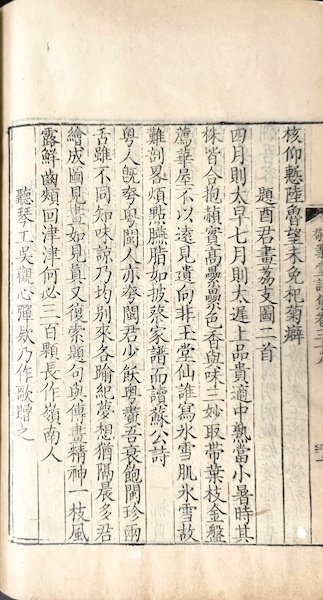 核仰慙陸魯望未免杞菊癖
題酉君畫荔支圖二首
四月則太早七月則太遲上品貴適中熟當小暑時其
株皆合抱積實高疊疊色香與味三妙取帶葉枝金盤
薦華屋不以遠見遺向非玉堂仙誰寫氷雪肌氷雪故
難剖畧煩點臙脂如披蔡家譜而讀蘇公詩
粵人旣夸粵閩人亦夸閩君少飫粵青吾衰飽閩珍兩
舌雖不同知味諒乃均別來各踰紀夢想猶隔晨多君
繪成圖見畫如見眞又復索題句與傳畫精神一枝風
露鮮齒頰回津津何必三百顆長作嶺南人
聽琴工吳觀心彈欸乃作歌贈之
敬業堂詩集卷三十